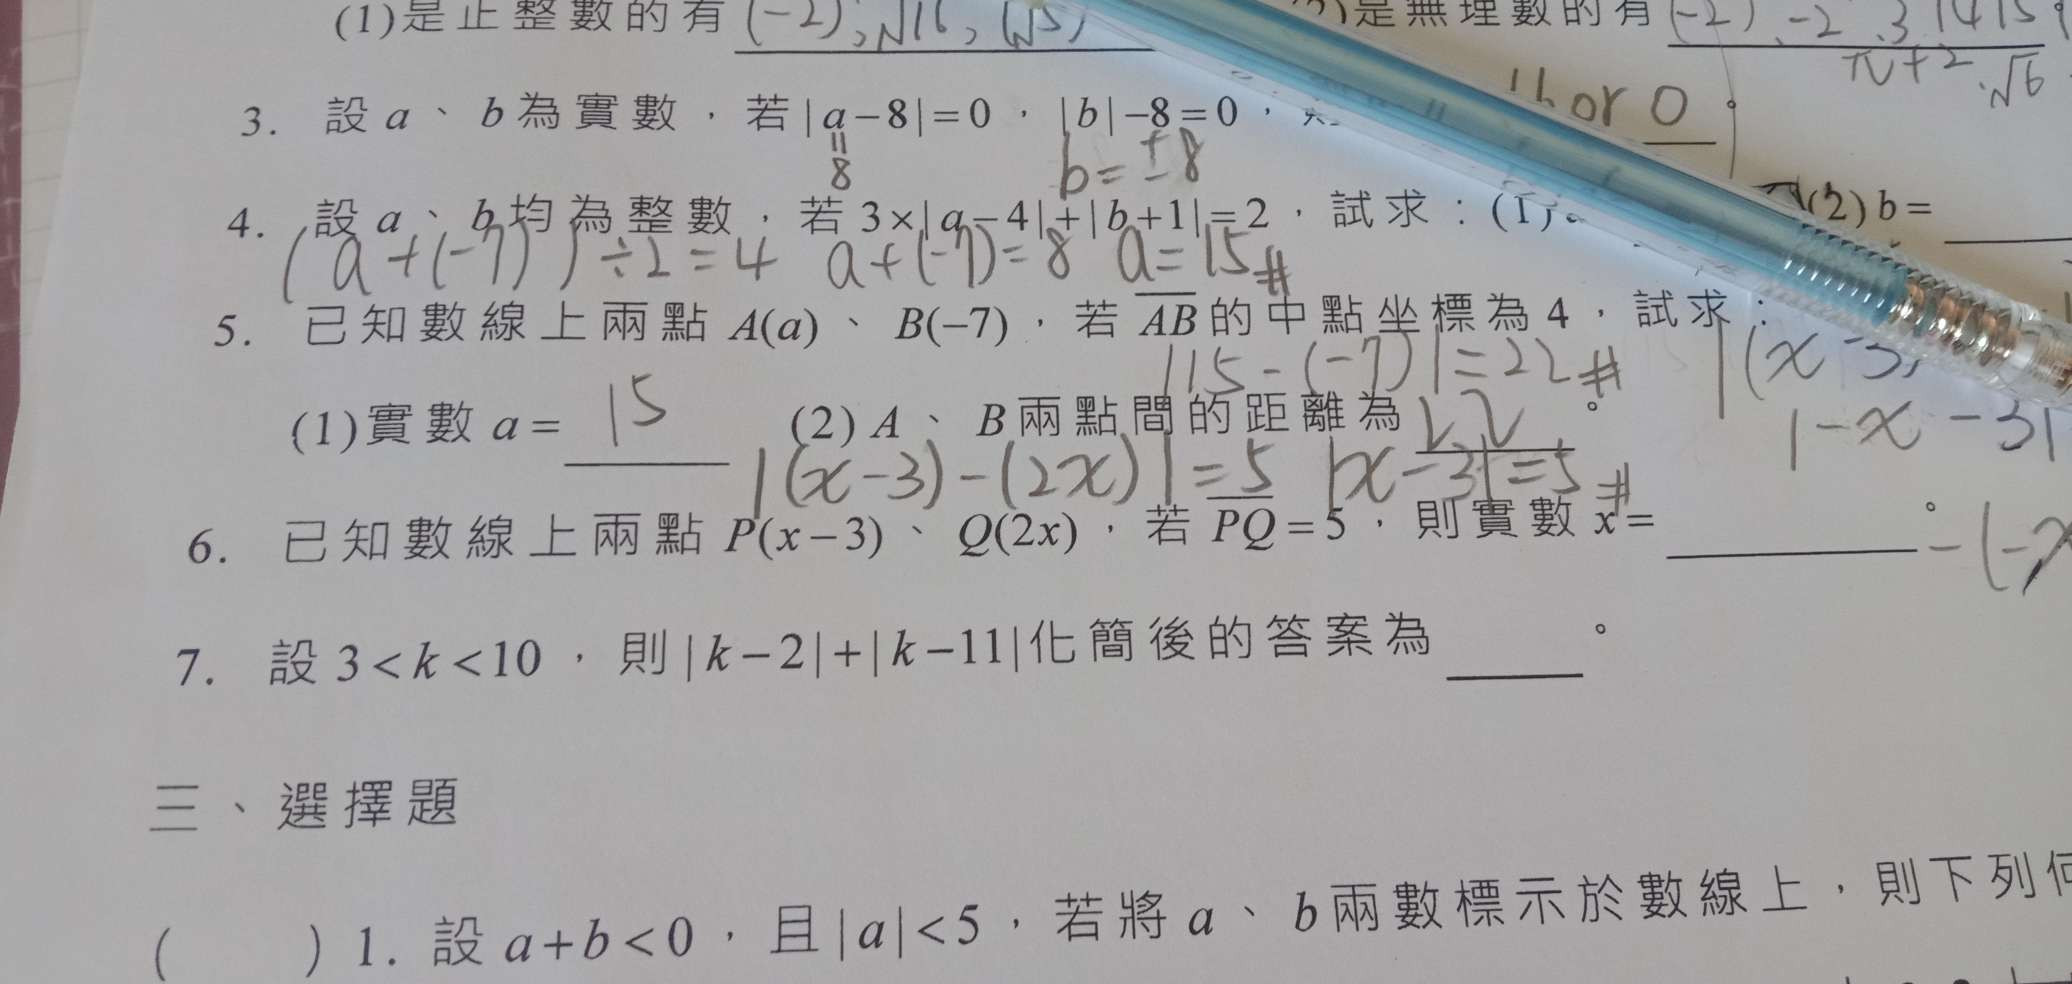 (1)是正整數的有 (-2)², √16, (√5)² (2)是無理數的有
π+2、√6
3. 設 a、b為實數，若|a-8|=0，|b|-8=0，則 16 or 0。
=
8 b=±8
4. 設 a、b均為整數，若3×|a-4|+|b+1|=2，試求：(1) (2) b=
(a+(-7))÷2=4 a+(-7)=8 a=15#
5. 已知數線上兩點 A(a)、B(-7)，若 AB 的中點坐標為4，試求：
|15-(-7)|=22# |(x-3)
(1)實數 a= 15 (2) A、B兩點間的距離為 22。
|-x-3|
|(x-3)-(2x)|=5 |x-3|=5#
6. 已知數線上兩點 P(x-3)、Q(2x)，若 PQ=5，則實數 x= 。
-(-x
7. 設 3<k<10，則|k-2|+|k-11|化簡後的答案為 。
三、選擇題
( ) 1. 設 a+b<0，且|a|<5，若將 a、b兩數標示於數線上，則下列何